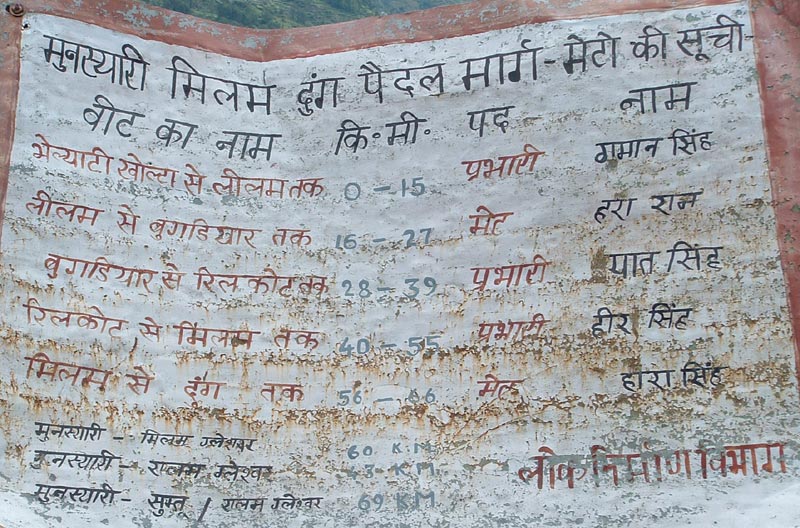 मुनस्यारी मिलम दुंग पैदल मार्ग - मेटो की सूची -
वीट का नाम कि॰मी॰ पद नाम
भेल्याटी खोल्टा से लीलम तक 0 - 15 प्रभारी गमान सिंह
लीलम से बुगडियार तक 16 - 27 मेट हरा राम
बुगडियार से रिलकोट तक 28 - 39 प्रभारी पात सिंह
रिलकोट से मिलम तक 40 - 55 प्रभारी हीरा सिंह
मिलम से दुंग तक 56 - 66 मेट हारा सिंह
मुनस्यारी - मिलम ग्लेश्वर 60 KM
मुनस्यारी - रालम ग्लेश्वर 43 KM
मुनस्यारी - सुमतू / रालम ग्लेश्वर 69 KM
लोक निर्माण विभाग